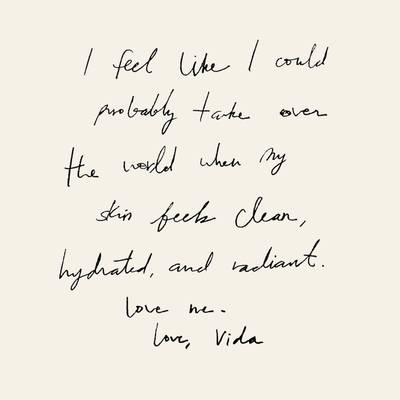 I feel like I could
probably take over
the world when my
skin feels clean,
hydrated, and radiant.
love me.
love, Vida